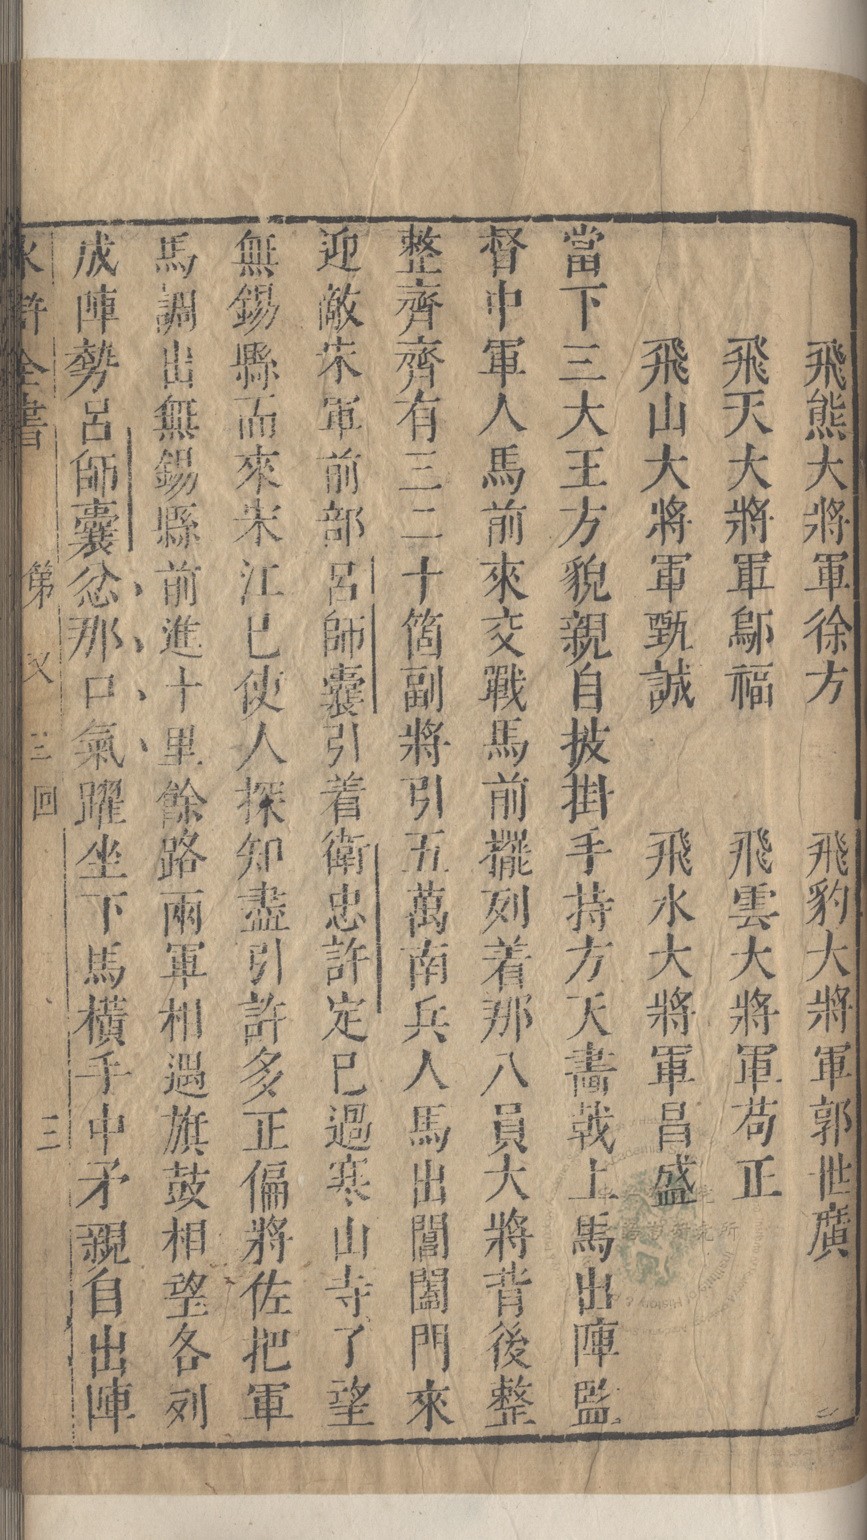 飛熊大將軍徐方　飛豹大將軍郭世廣
飛天大將軍鄔福　飛雲大將軍苟正
飛山大將軍甄誠　飛水大將軍昌盛
當下三大王方貌親自披掛手持方天畫戟上馬出陣監
督中軍人馬前來交戰馬前擺列着那八員大將背後整
整齊齊有三二十箇副將引五萬南兵人馬出閶闔門來
迎敵宋軍前部呂師囊引着衛忠許定已過寒山寺了望
無錫縣而來宋江已使人探知盡引許多正偏將佐把軍
馬調出無錫縣前進十里餘路兩軍相遇旗鼓相望各列
成陣勢呂師囊忿那口氣躍坐下馬橫手中矛親自出陣
水滸全書　第　三回　三